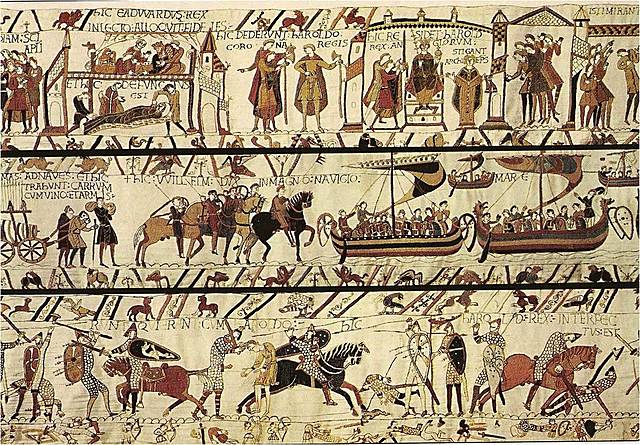 HIC EADVVARDUS:REX
IN LECTO:ALLOQVIT:FIDELES:
ET HIC:DEFVNCTUS
EST
HIC DEDERVNT:HAROLDO:
CORONA REGIS
HIC RE SIDET:HAROLD
REX:AN GLORVM:
STIGANT
ARCHIEPS
ISTI MIRANT
AD NAVES:ET HIC
TRAHUNT:CARRVM
CVM VINO:ET ARMIS:
HIC:VVILLELM:DVX IN MAGNO:NAVIGIO:
MARE
HAROLDO: HIC HAROLD:REX:INTERFEC
TVS:EST